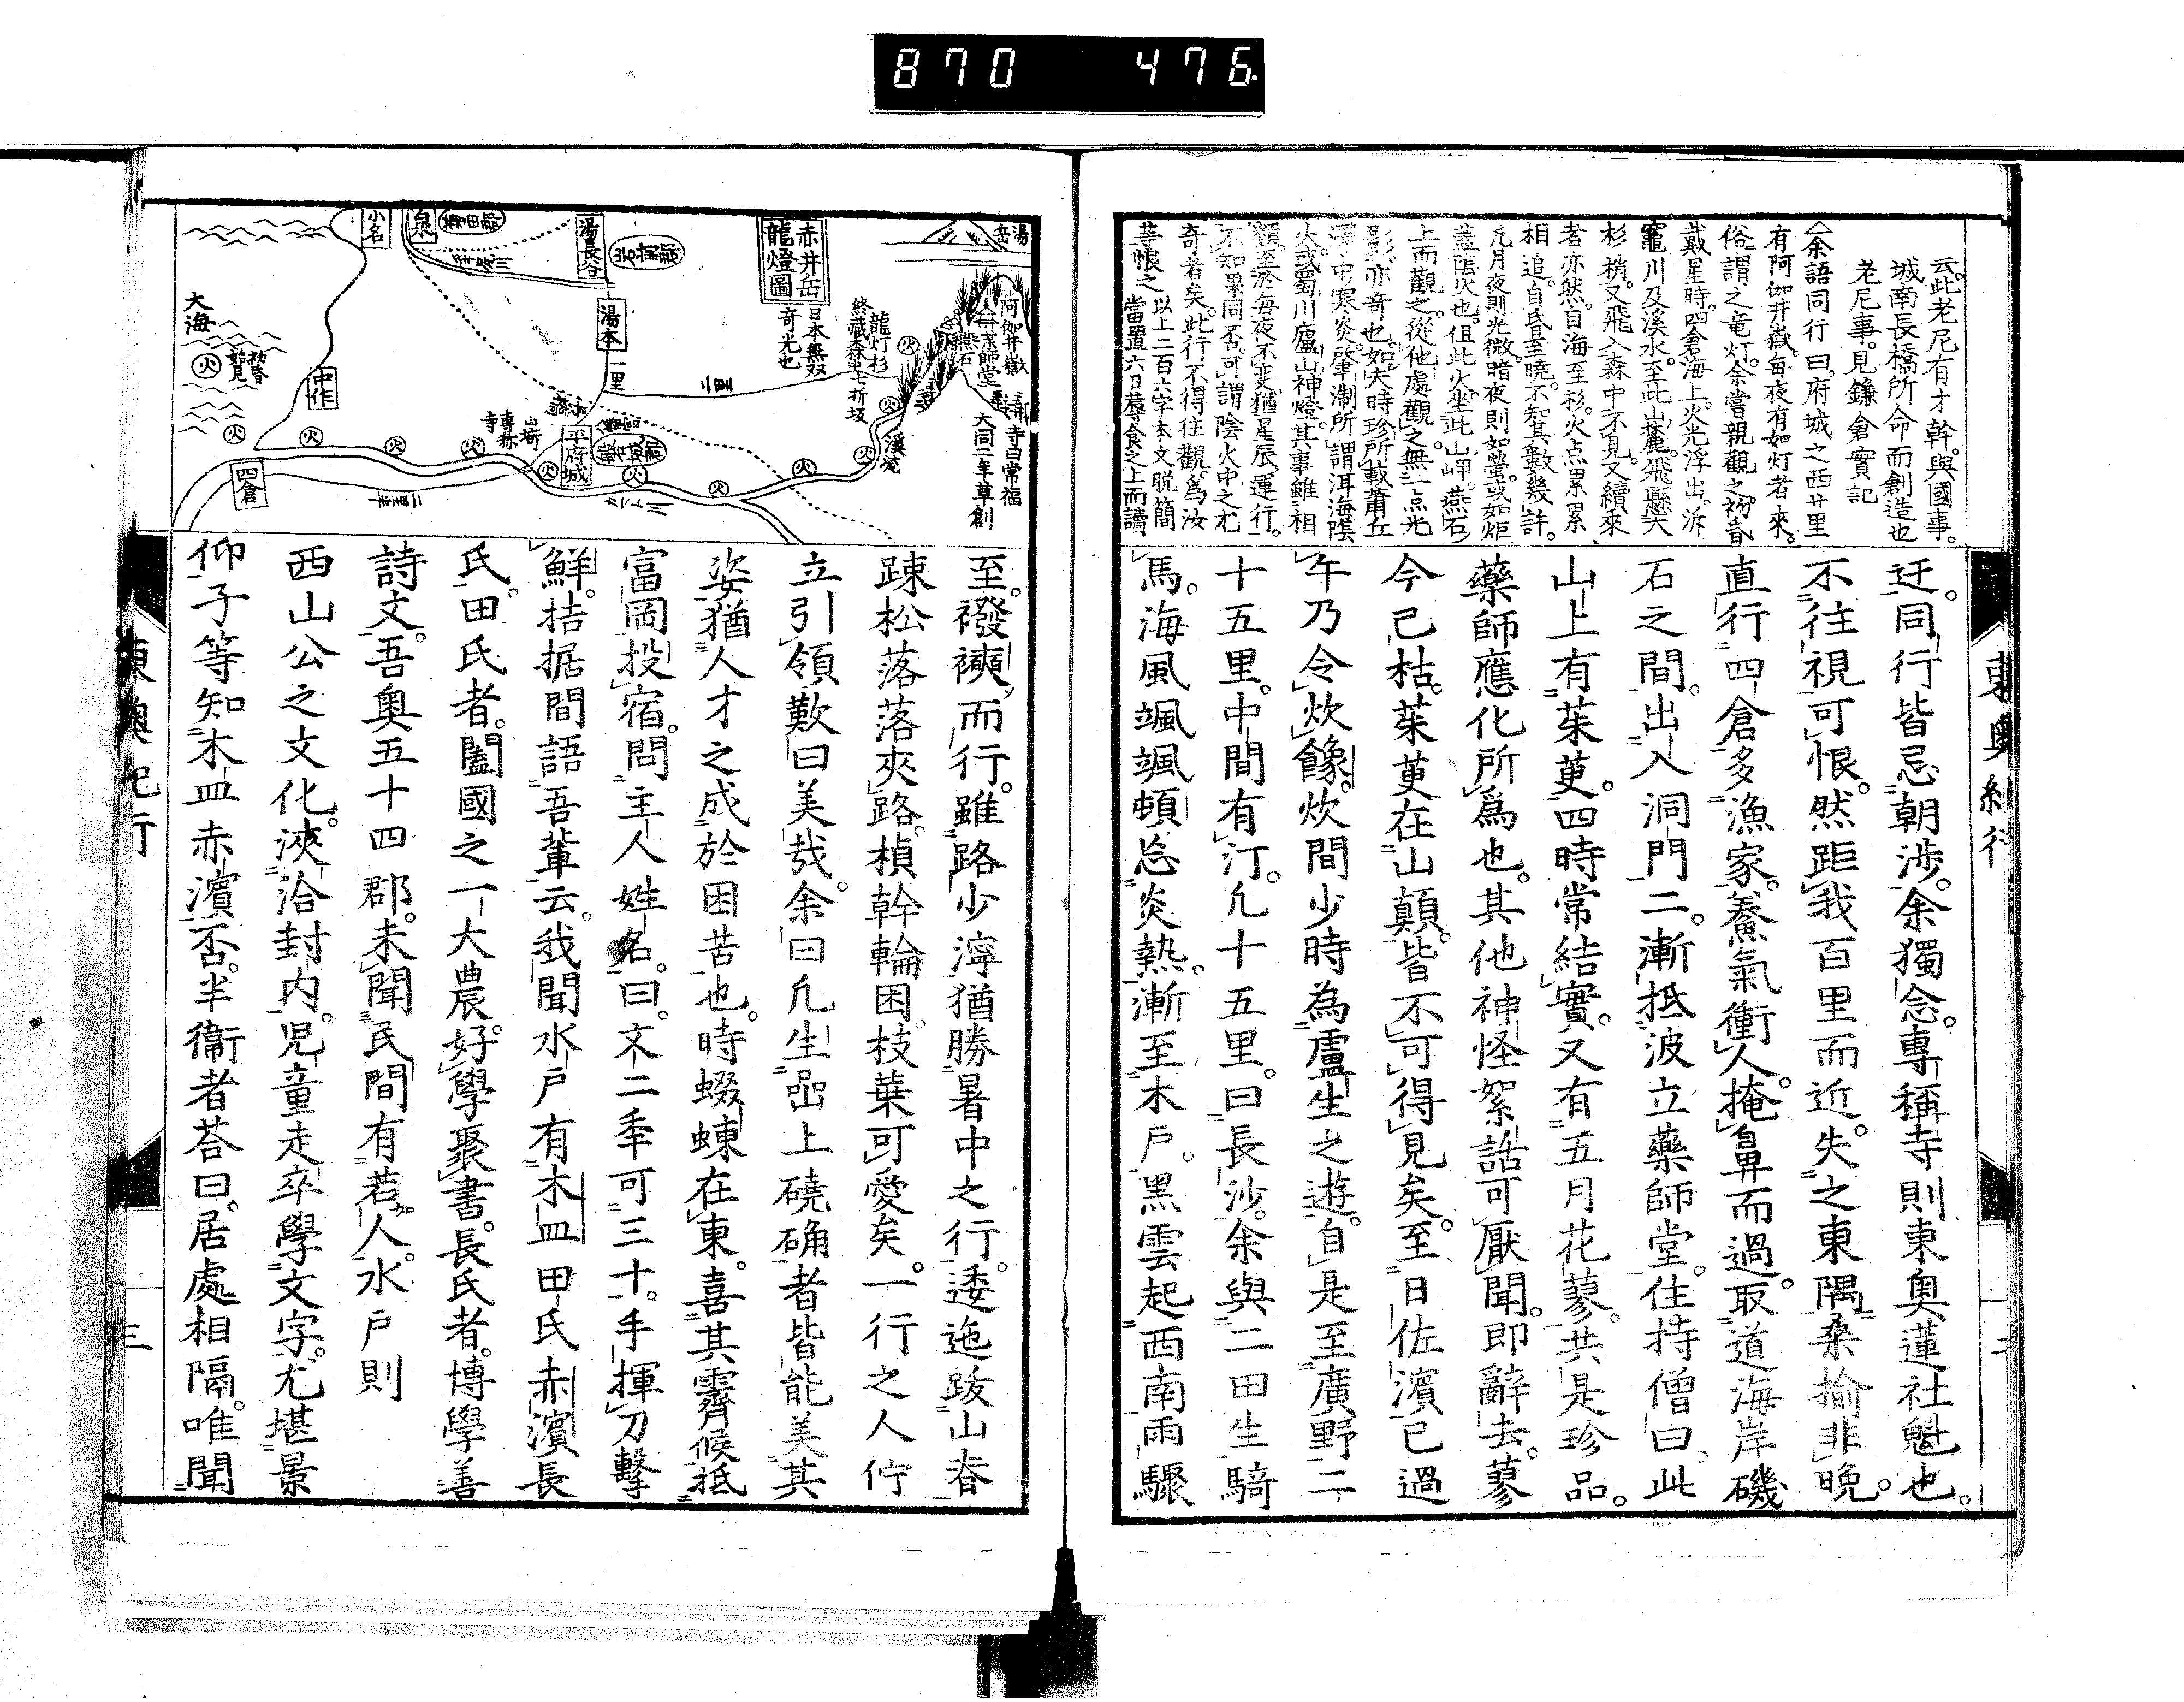 870 476
云。此老尼有才幹。與國事。
城南長橋所命而創造也
老尼事。見鎌倉實記
余語同行曰。府城之西廿里
有阿伽井嶽。毎夜有如灯者來。
俗謂之竜灯。余嘗親觀之。初昏
戴星時。四倉海上。火光浮出。泝
竈川及溪水。至此山麓。飛懸大
杉梢。又飛入森中不見。又續來
者亦然。自海至杉。火点累累
相追。自昏至曉。不知其數幾許。
凢月夜則光微。暗夜則如螢。或如炬
蓋陰火也。但此火。坐此山岬。燕石
上而觀之。從他處觀之。無一点光
影。亦奇也。如夫時珍所載蕭丘
火。或蜀川廬山神燈。其事雖相
類。至於毎夜不変。猶星辰運行。
不知果同否。可謂陰火中之尤
奇者矣。此行不得往觀。為汝
等恨之 以上二百六字本文脱簡
當置六日蓐食之上而讀
迂。同行皆忌朝渉。余獨念。專稱寺則東奥蓮社魁也。
不往視可恨。然距我百里而近。失之東隅。桑揄非晩。
直行四倉。多漁家。鯗氣衝人。掩鼻而過。取道海岸磯
石之間。出入洞門二。漸抵波立藥師堂。住持僧曰。此
山上有茱萸。四時常結實。又有五月花蓼。共是珍品。
藥師應化所為也。其他神怪絮話可厭聞。即辭去。蓼
今已枯。茱萸在山顛。皆不可得見矣。至日佐濱已過
午乃令炊餘。炊間少時為盧生之遊。自是至廣野二
十五里。中間有汀。凢十五里。曰長沙。余與二田生騎
馬。海風颯颯頓忘炎熱。漸至木戸。黒雲起西南雨驟
東奥紀行
赤井岳
龍燈圖
日本無双
奇光也
湯岳
阿伽井嶽
薬師堂
燕石
寺曰常福
大同二年草創
龍灯杉
終蔵森中
七折坂
溪流
湯長谷
湯本
一里
二里
平府城
専称寺
山崎
小名
泉
中作
四倉
大海
初昏
始見
火
至。襏襫而行。雖路少濘猶勝暑中之行。逶迤跋山。春
踈松落落夾路。楨幹輪囷。枝葉可愛矣。一行之人佇
立引領歎曰美哉。余曰凢生嵒上磽确者皆能美其
姿。猶人才之成於困苦也。時螮蝀在東。喜其霽候抵
富岡投宿。問主人姓名。曰。文二秊可三十。手揮刀擊
鮮。拮据間語吾輩云。我聞水戸有木皿田氏赤濱長
氏。田氏者。闔國之一大農。好學聚書。長氏者。博學善
詩文。吾奥五十四郡。未聞民間有若人。水戸則
西山公之文化。浹洽封内。児童走卒學文字。尤堪景
仰。子等知木皿赤濱否。半衞者荅曰。居處相隔。唯聞
東奥紀行
三